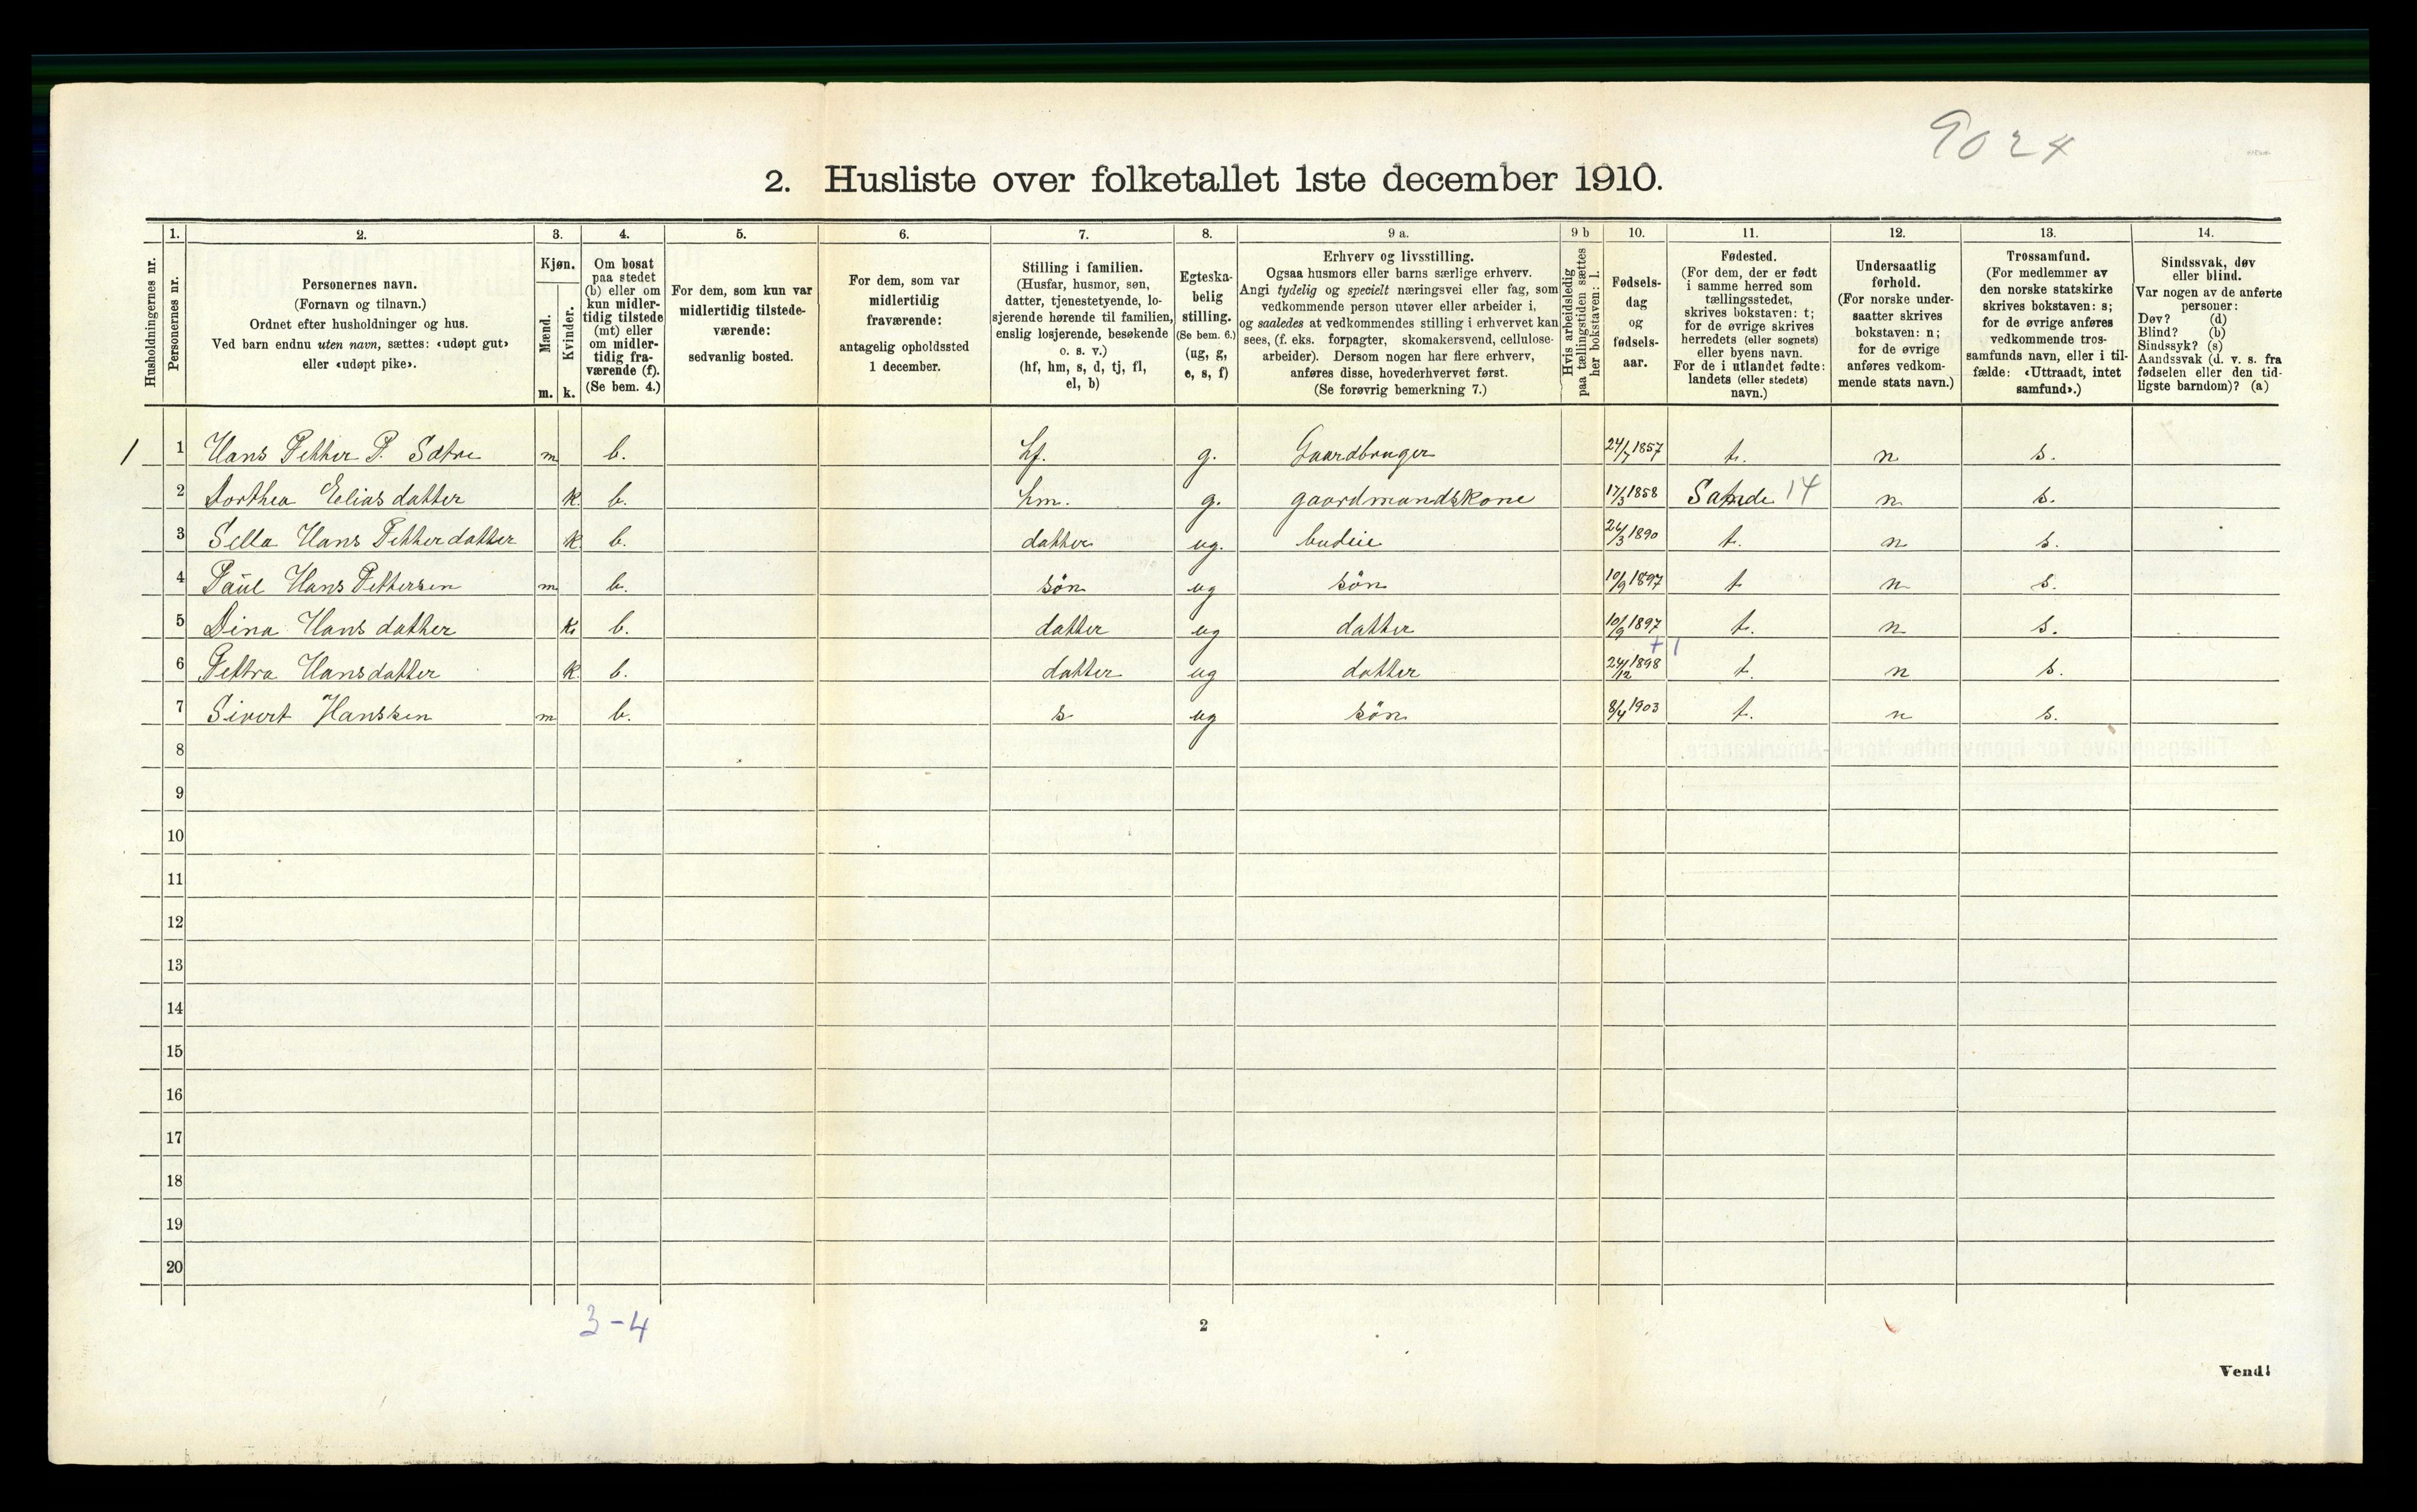 9024
2. Husliste over folketallet 1ste december 1910.
Husholdningernes nr.
1. Personernes nr.
2. Personernes navn.
(Fornavn og tilnavn.)
Ordnet efter husholdninger og hus.
Ved barn endnu uten navn, sættes: «udøpt gut»
eller «udøpt pike».
3. Kjøn.
Mænd. m.
Kvinder. k.
4. Om bosat
paa stedet
(b) eller om
kun midler-
tidig tilstede
(mt) eller
om midler-
tidig fra-
værende (f).
(Se bem. 4.)
5. For dem, som kun var
midlertidig tilstede-
værende:
sedvanlig bosted.
6. For dem, som var
midlertidig
fraværende:
antagelig opholdssted
1 december.
7. Stilling i familien.
(Husfar, husmor, søn,
datter, tjenestetyende, lo-
sjerende hørende til familien,
enslig losjerende, besøkende
o. s. v.)
(hf, hm, s, d, tj, fl,
el, b)
8. Egteska-
belig
stilling.
(Se bem. 6.)
(ug, g,
e, s, f)
9 a. Erhverv og livsstilling.
Ogsaa husmors eller barns særlige erhverv.
Angi tydelig og specielt næringsvei eller fag, som
vedkommende person utøver eller arbeider i,
og saaledes at vedkommendes stilling i erhvervet kan
sees, (f. eks. forpagter, skomakersvend, cellulose-
arbeider). Dersom nogen har flere erhverv,
anføres disse, hovederhvervet først.
(Se forøvrig bemerkning 7.)
9 b Hvis arbeidsledig
paa tællingstiden sættes
her bokstaven: l.
10. Fødsels-
dag
og
fødsels-
aar.
11. Fødested.
(For dem, der er født
i samme herred som
tællingsstedet,
skrives bokstaven: t;
for de øvrige skrives
herredets (eller sognets)
eller byens navn.
For de i utlandet fødte:
landets (eller stedets)
navn.)
12. Undersaatlig
forhold.
(For norske under-
saatter skrives
bokstaven: n;
for de øvrige
anføres vedkom-
mende stats navn.)
13. Trossamfund.
(For medlemmer av
den norske statskirke
skrives bokstaven: s;
for de øvrige anføres
vedkommende tros-
samfunds navn, eller i til-
fælde: «Uttraadt, intet
samfund».)
14. Sindssvak, døv
eller blind.
Var nogen av de anførte
personer:
Døv? (d)
Blind? (b)
Sindssyk? (s)
Aandssvak (d. v. s. fra
fødselen eller den tid-
ligste barndom)? (a)
1 1 Hans Petter P. Sætre m b. hf. g. Gaardbruger 24/7 1857 t. n s.
2 Dorthea Eliasdatter k. b. hm. g. gaardmandskone 17/3 1858 Sande 14 n s.
3 Sella Hans Petterdatter k b. datter ug. budeie 26/3 1890 t. n s.
4 Paul Hans Pettersen m b. søn ug søn 10/9 1897 t n s.
5 Dina Hansdatter k. b. datter ug datter 10/9 1897 t. n s.
+ 1
6 Pettra Hansdatter k. b. datter ug datter 24/12 1898 t. n s.
7 Sivert Hanssen m b. s ug søn 8/4 1903 t. n s.
8
9
10
11
12
13
14
15
16
17
18
19
20
3-4
2
Vend!